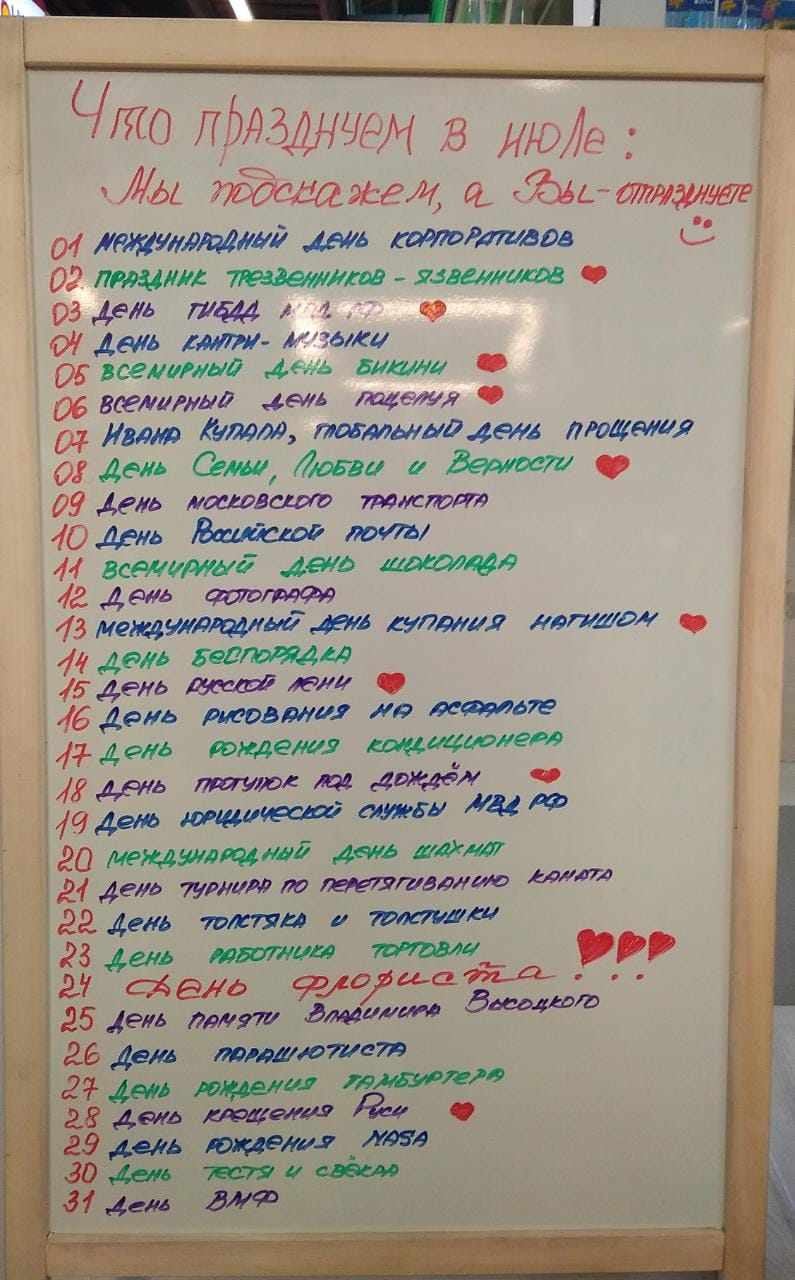 Что празднуем в июле:
Мы подскажем, а Вы - отпразднуете
01 международный день корпоративов
02 праздник трезвенников - язвенников
03 день ГИБДД МВД РФ
04 день кантри-музыки
05 всемирный день бикини
06 всемирный день поцелуя
07 Ивана Купала, глобальный день прощения
08 День Семьи, Любви и Верности
09 День московского транспорта
10 День Российской почты
11 всемирный день шоколада
12 День фотографа
13 международный день купания нагишом
14 день беспорядка
15 День русской лени
16 День рисования на асфальте
17 день рождения кондиционера
18 день прогулок под дождём
19 День юридической службы МВД РФ
20 международный день шахмат
21 день турнира по перетягиванию каната
22 День толстяка и толстушки
23 День работника торговли
24 День флориста!!!
25 день памяти Владимира Высоцкого
26 День парашютиста
27 День рождения гамбургера
28 День крещения Руси
29 День рождения NASA
30 День тестя и свёкра
31 день ВМФ